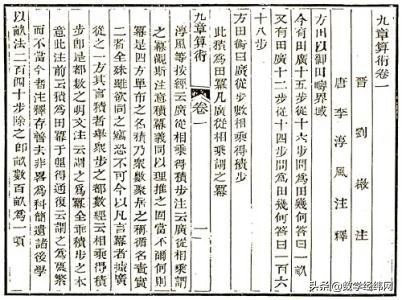 九章算術卷一
晉 劉徽 注
唐 李淳風 注釋
方田以御田疇界域
今有田廣十五步從十六步問爲田幾何答曰一畝
又有田廣十二步從十四步問爲田幾何答曰一百六
十八步
方田術曰廣從步數相乘得積步
此積爲田冪凡廣從相乘謂之冪
九章算術 卷一
淳風等按經云廣從相乘得積步注云廣從相乘謂
之冪觀斯注意積冪義同以理推之固當不爾何則
冪是四方單布之名積乃衆數聚居之稱循名責實
二者全殊雖欲同之竊恐不可今以凡言冪者據廣
從之一方其言積者舉衆步之都數經云相乘得積
步即是都數之明文注云謂之爲冪全乖積步之本
意此注前云積爲田冪於理得通復云謂之爲冪繁
而不當今者注釋存善去非畧爲科簡遺諸後學
以畝法二百四十步除之即畝數百畝爲一頃
头条@数学经纬网